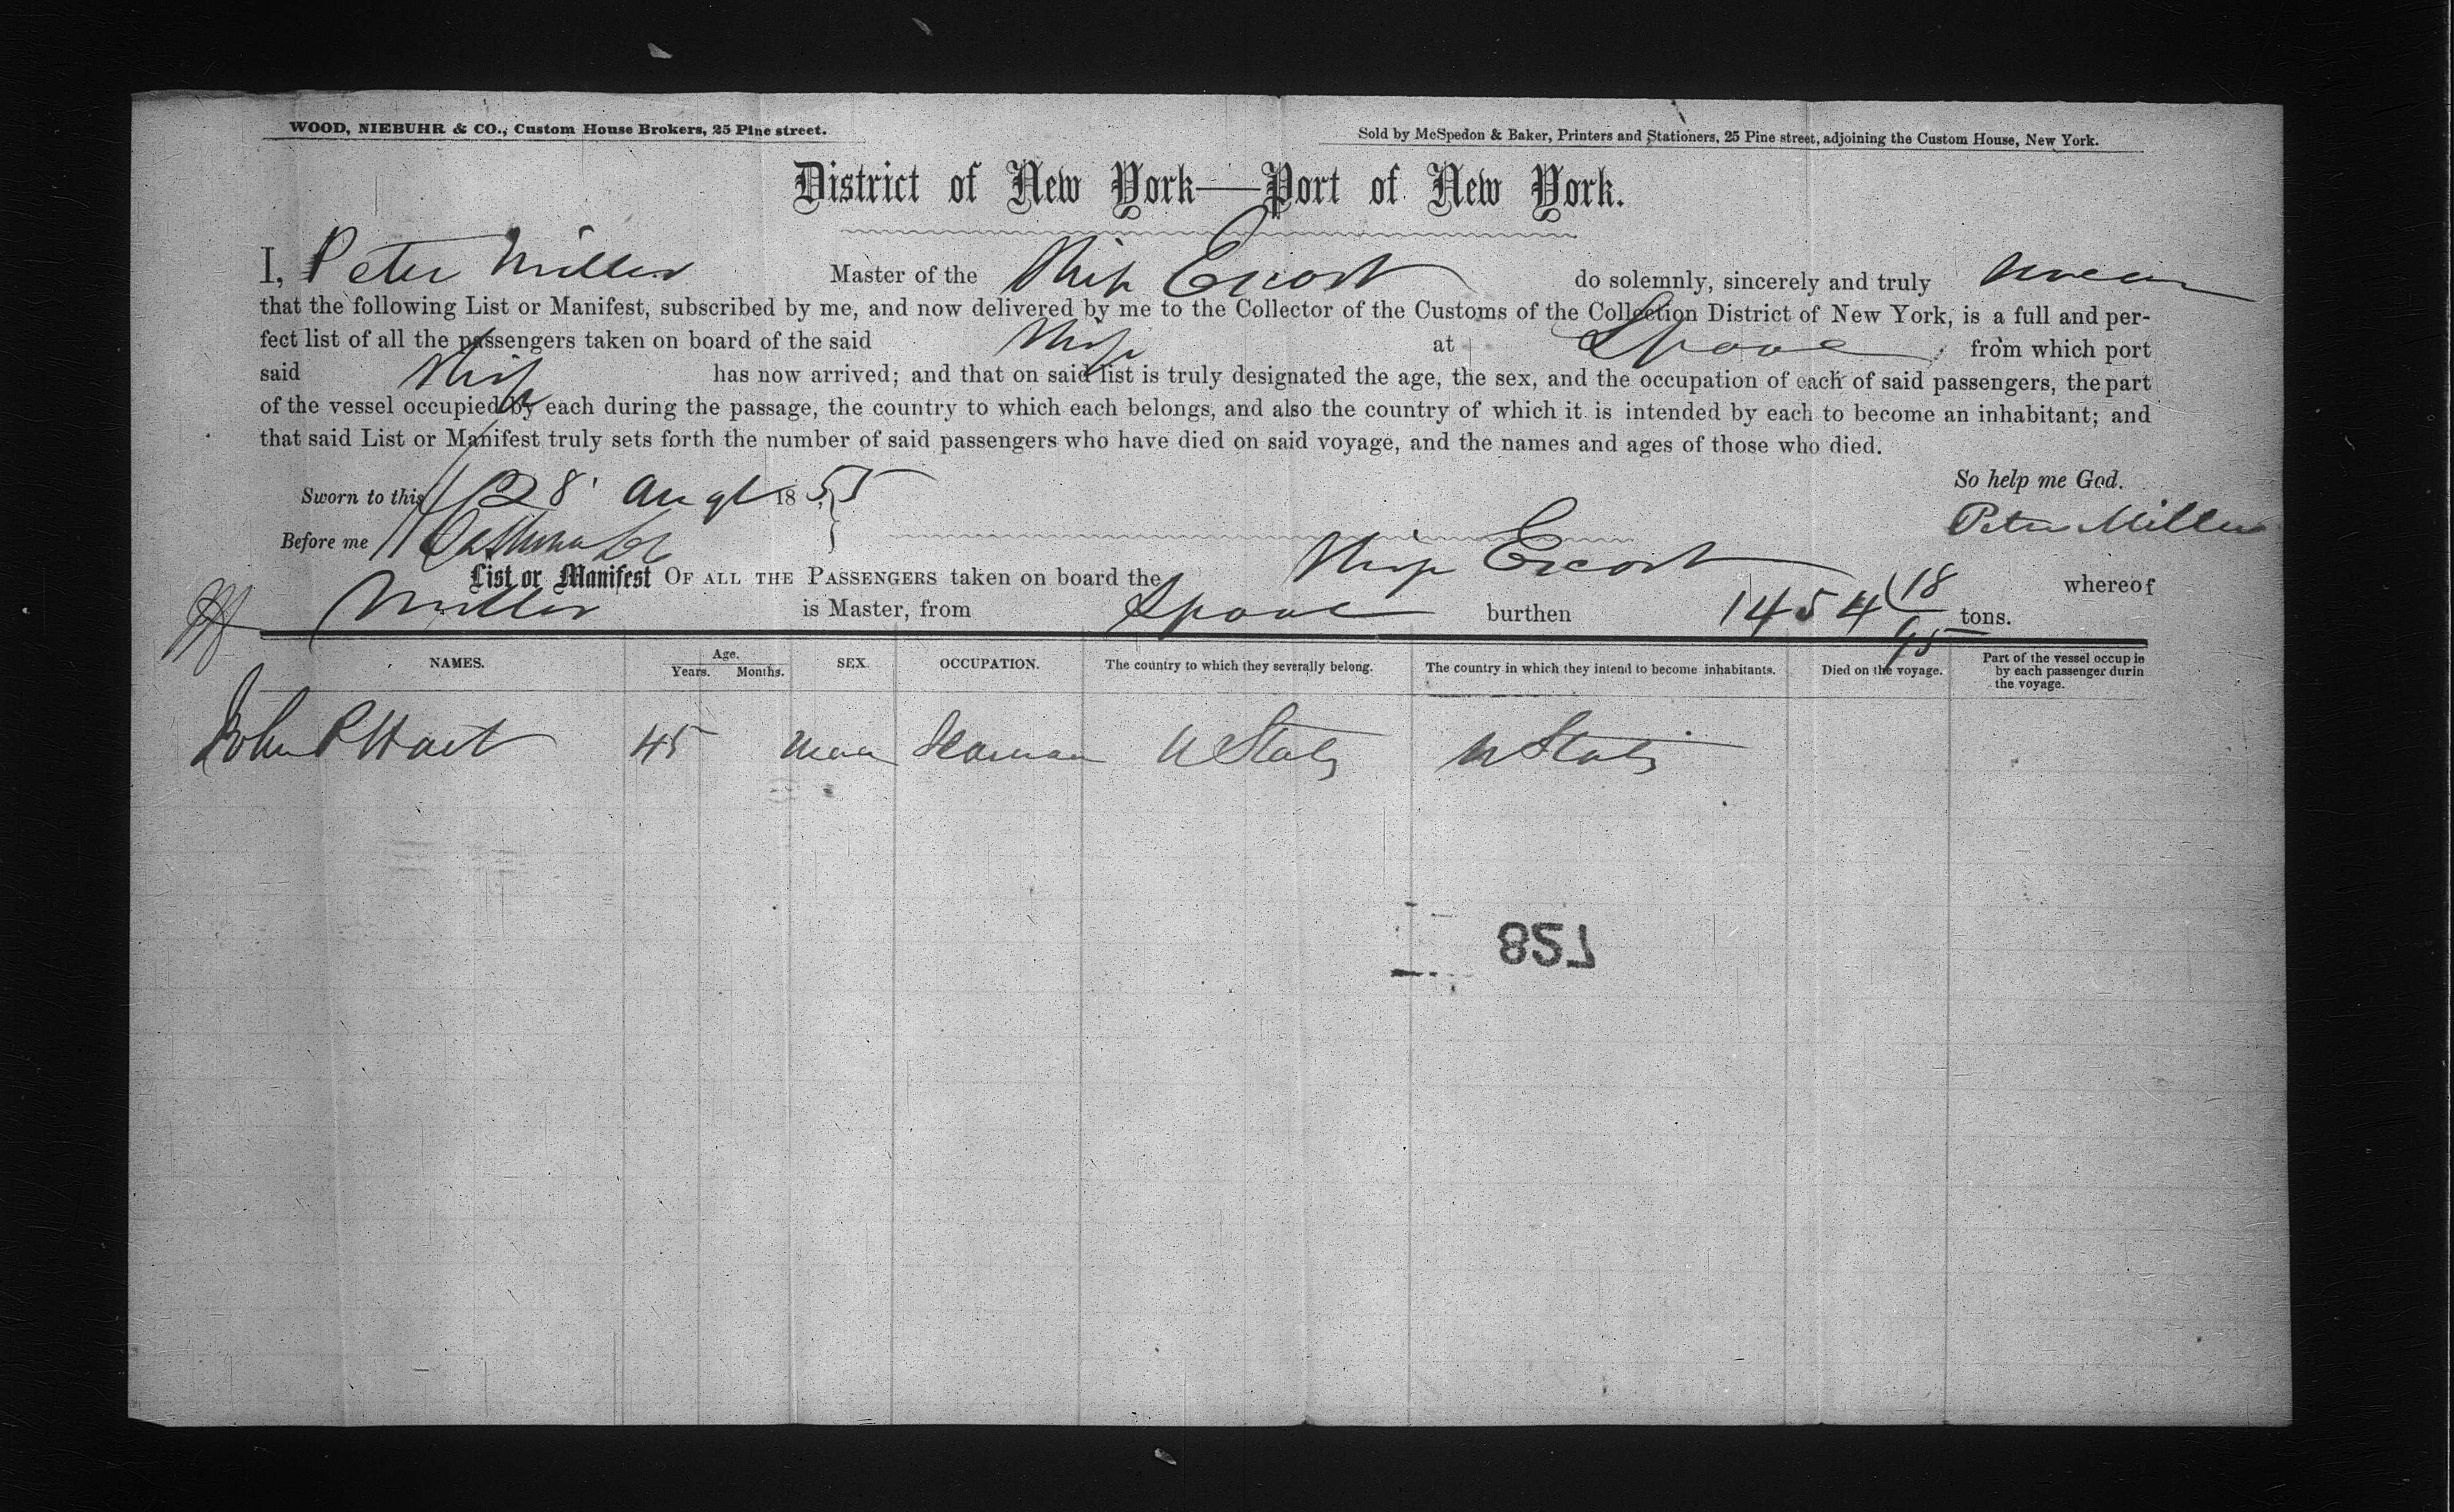 WOOD, NIEBUHR & CO., Custom House Brokers, 25 Pine street.
Sold by McSpedon & Baker, Printers and Stationers, 25 Pine street, adjoining the Custom House, New York.
District of New York—Port of New York.
I, Peter Miller Master of the Ship Escort do solemnly, sincerely and truly swear
that the following List or Manifest, subscribed by me, and now delivered by me to the Collector of the Customs of the Collection District of New York, is a full and per-
fect list of all the passengers taken on board of the said Ship at Lpool from which port
said Ship has now arrived; and that on said list is truly designated the age, the sex, and the occupation of each of said passengers, the part
of the vessel occupied by each during the passage, the country to which each belongs, and also the country of which it is intended by each to become an inhabitant; and
that said List or Manifest truly sets forth the number of said passengers who have died on said voyage, and the names and ages of those who died.
So help me God.
Sworn to this 28 Augt 1855
Peter Miller
Before me
List or Manifest OF ALL THE PASSENGERS taken on board the Ship Escort whereof
Miller is Master, from Lpool burthen 1454 18/95 tons.
NAMES. Age. Years. Months. SEX. OCCUPATION. The country to which they severally belong. The country in which they intend to become inhabitants. Died on the voyage. Part of the vessel occupie by each passenger durin the voyage.
John P Hart 45 Man Seaman U States U States
827